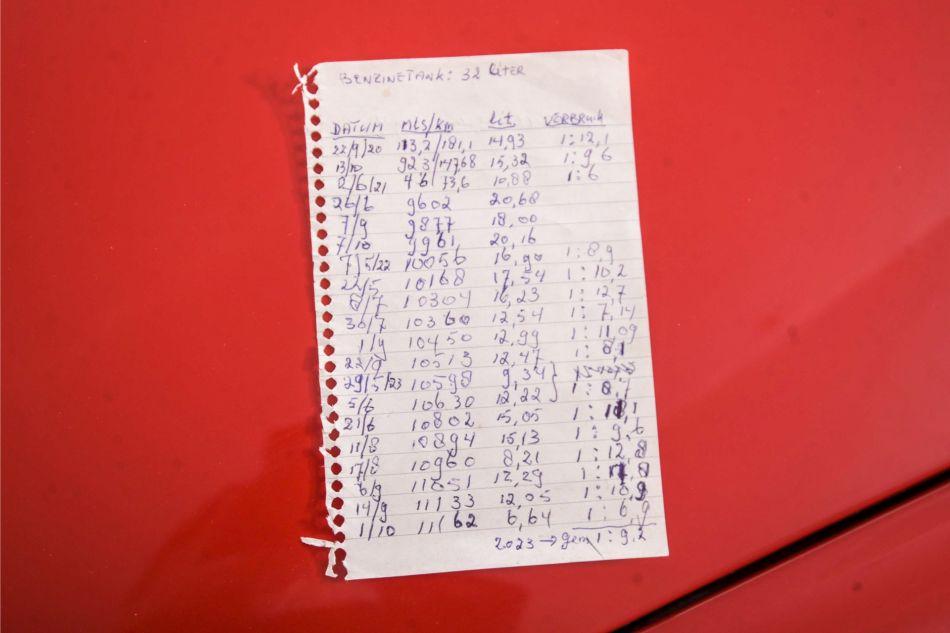 BENZINETANK: 32 LITER
DATUM MLS/KM Lit. VERBRUIK
22/9/20 113,2/181,1 14,93 1:12,1
13/10 92 3/147,68 15,32 1:9,6
2/6/21 46/73,6 10,88 1:6
26/6 9602 20,68
7/9 9877 18,00
7/10 9961, 20,16
7/5/22 10056 16,90 1:8,9
22/5 10168 17,54 1:10,2
8/7 10304 16,23 1:12,7
30/7 10360 12,54 1:7,14
1/9 10450 12,99 1:11,09
22/9 10513 12,47 1:8,1
29/5/23 10598 9,34 }
5/6 10630 12,22 } 1:8,7
21/6 10802 15,05 1:
11/8 10894 15,13 1:9,6
17/8 10960 8,21 1:12,8
6/9 11051 12,29 1:
14/9 11133 12,05 1:10,9
1/10 11162 6,64 1:6,9
2023 → gem 1:9,2